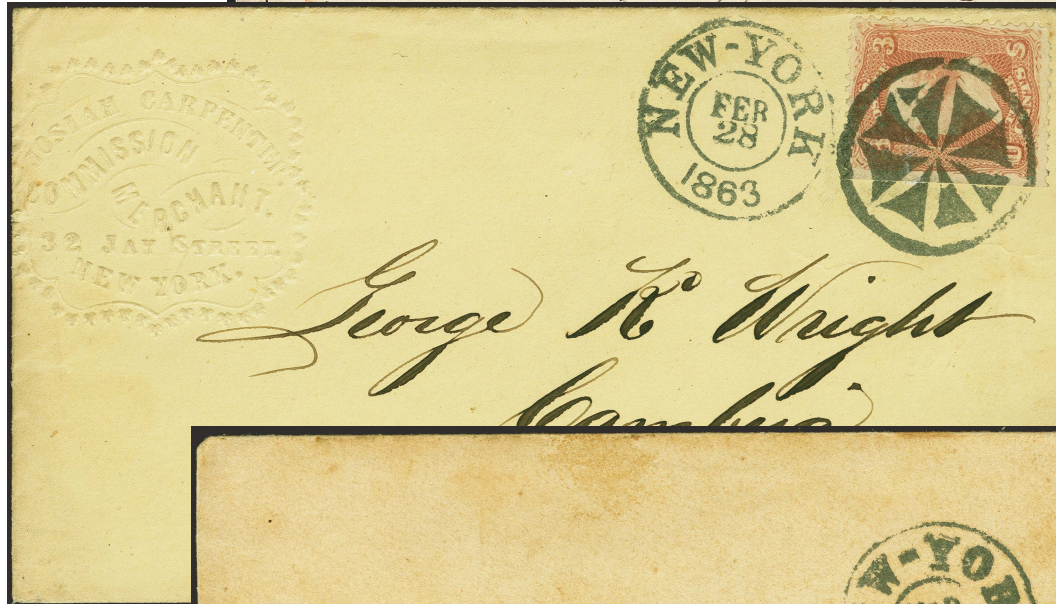 JOSIAH CARPENTER,
COMMISSION
MERCHANT.
32 JAY STREET,
NEW YORK.
NEW-YORK
FEB
28
1863
3
George K Wright
Cambri
W-YOR